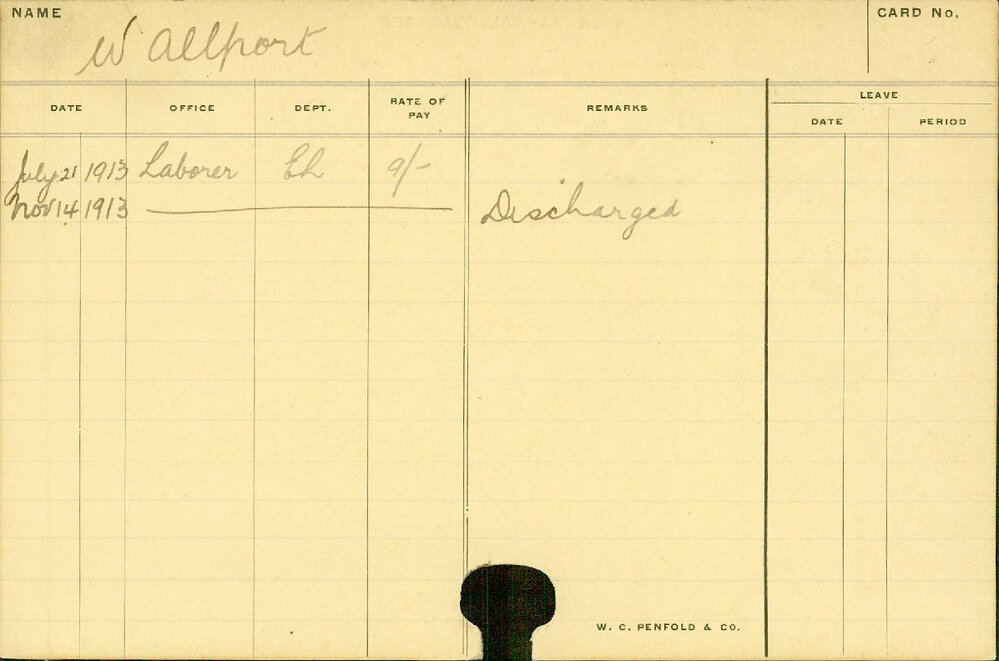 NAME
W Allport
CARD No.
DATE OFFICE DEPT. RATE OF PAY REMARKS LEAVE
DATE PERIOD
July 21 1913 Laborer Eh 9/-
Nov 14 1913 Discharged
W. C. PENFOLD & CO.